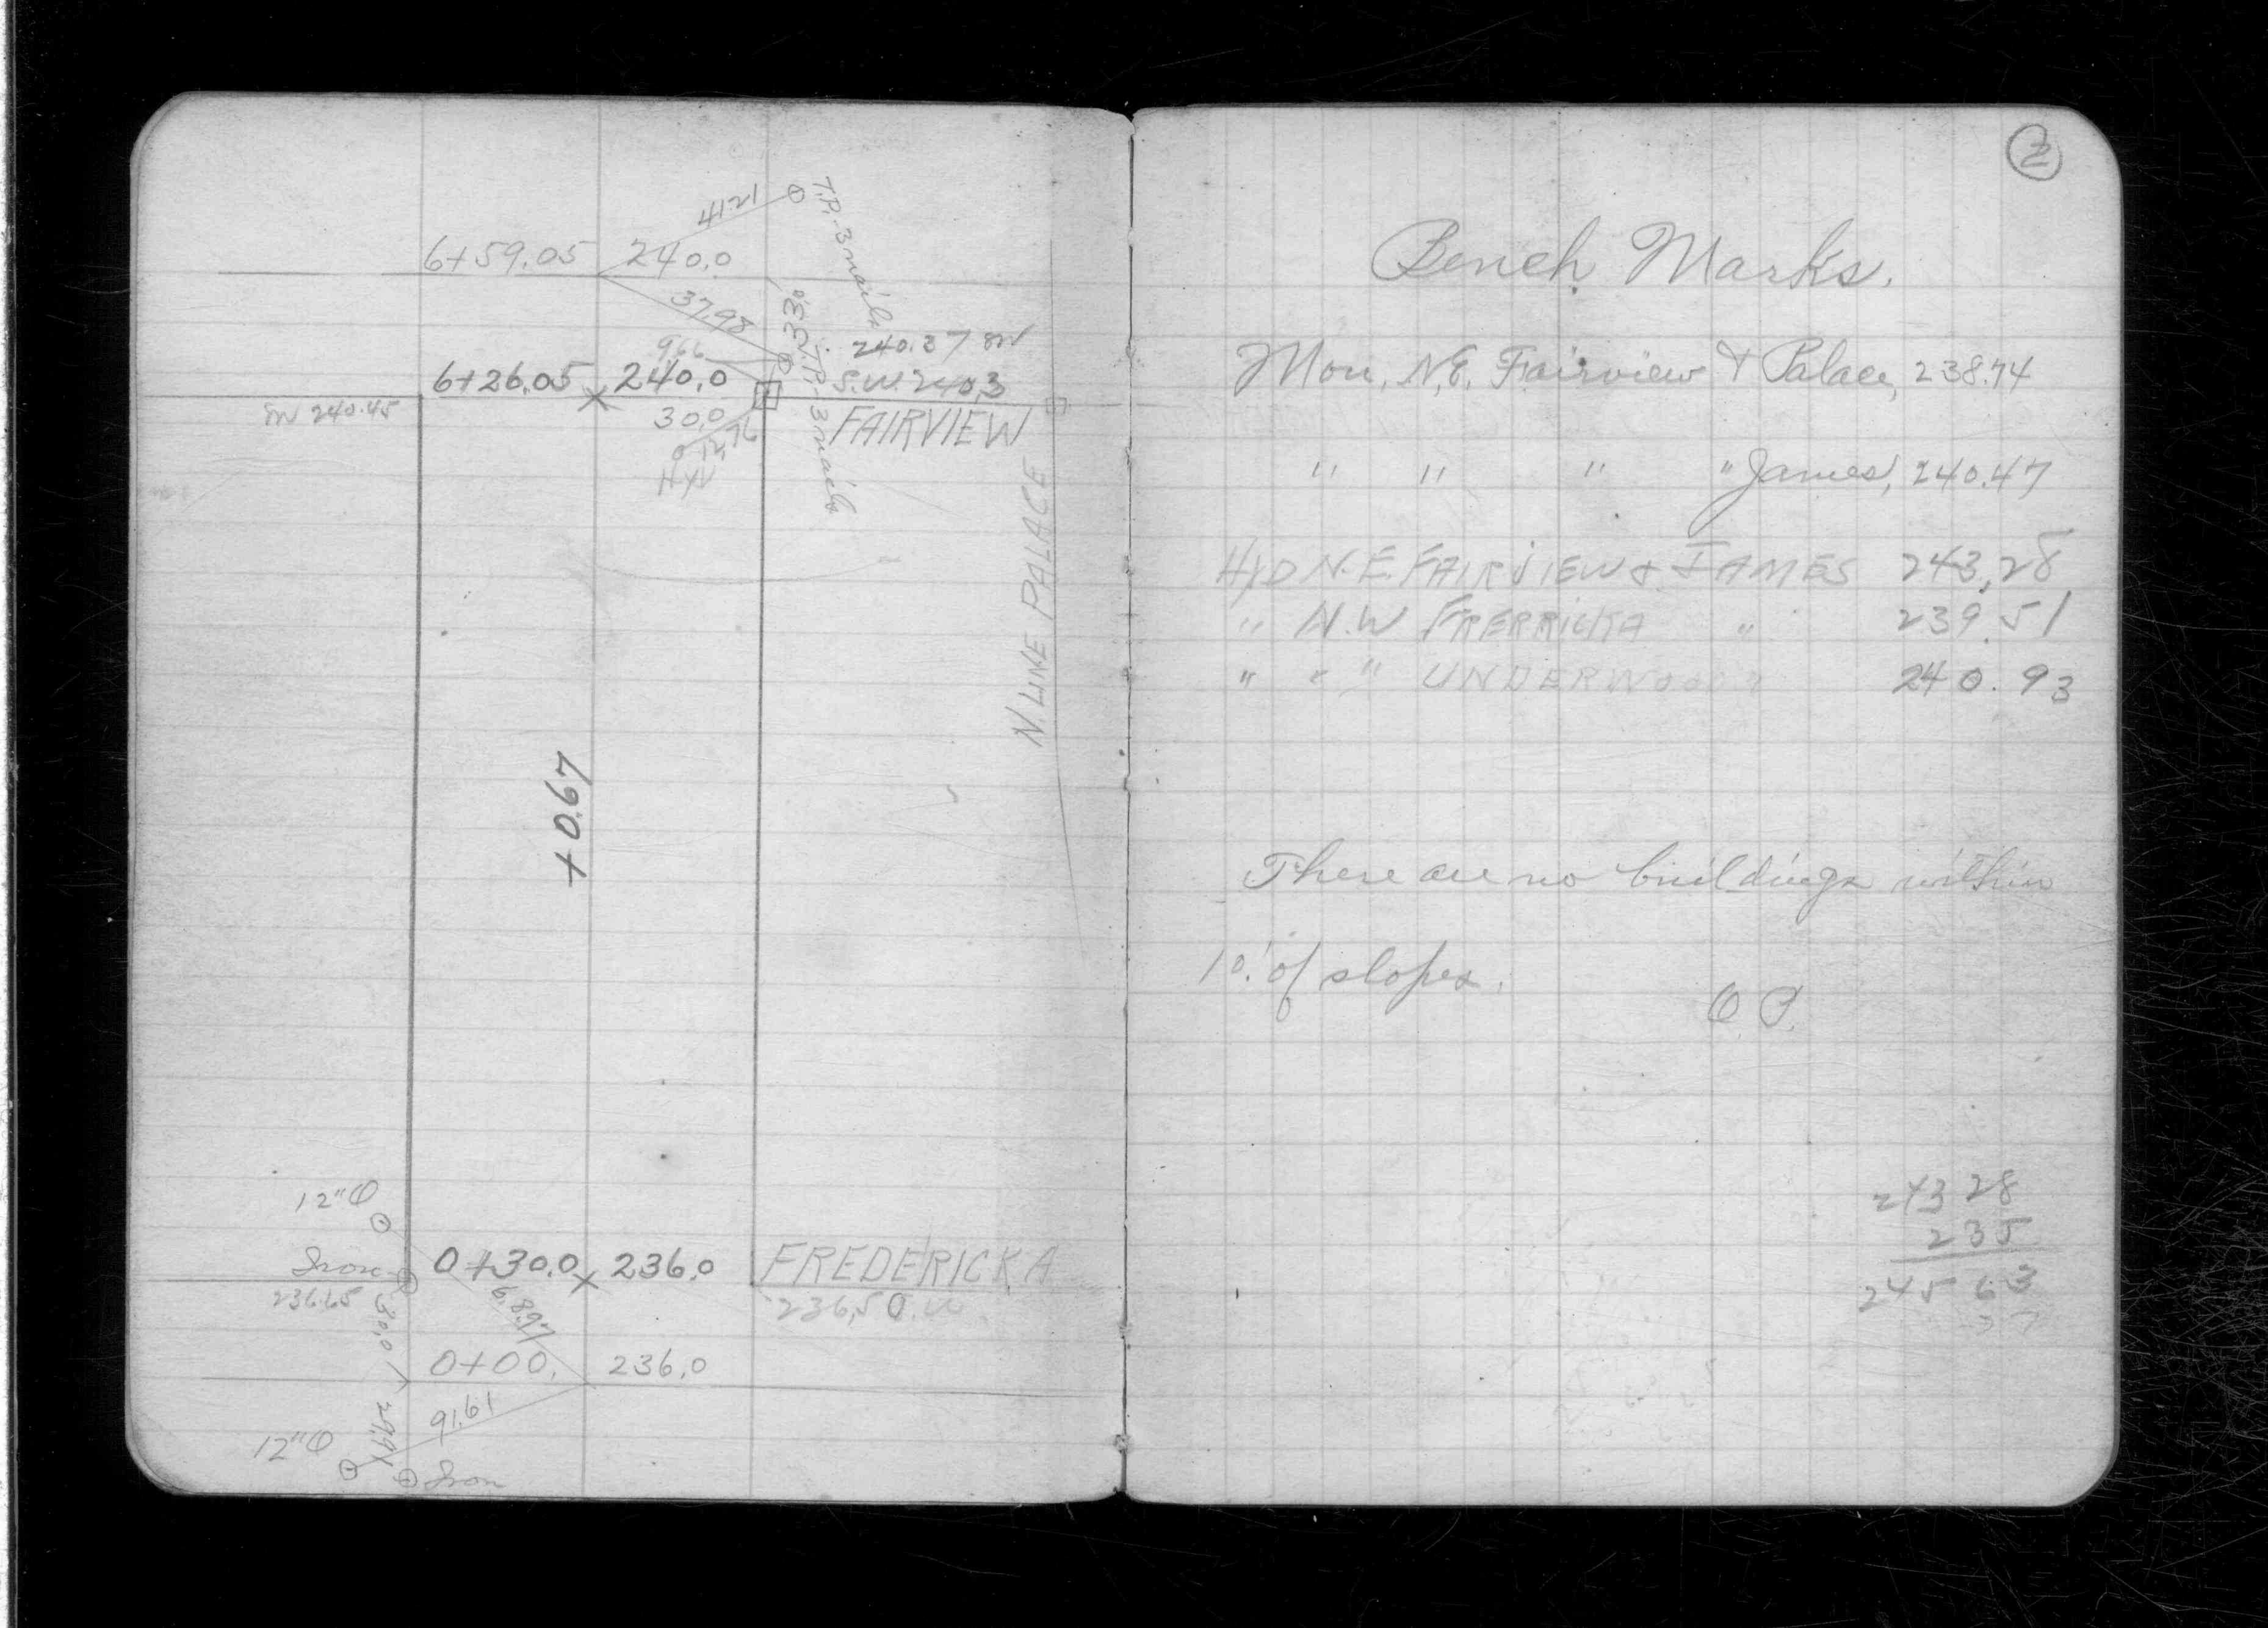 41.21
T.P. 3 nails
6+59.05 240.0
37.98
33.0
T.P. 3 nails
966
240.37 SW
6+26.05 240.0
S.W. 240.3
SW 240.45
30.0
FAIRVIEW
12.76
HYD
N. LINE PALACE
+0.67
12"
Iron
0+30.0 236.0
FREDERICKA
236.65
30.0
68.97
236.50
0+00. 236.0
91.61
29.94
12"
Iron
2
Bench Marks.
Mon. N.E. Fairview & Palace, 238.74
" " " " James, 240.47
HYD N.E. FAIRVIEW & JAMES 243.28
" N.W FRERRICKA " 239.51
" " " UNDERWOOD " 240.93
There are no buildings within
10.' of slopes.
O.P.
243 28
2 35
245 63